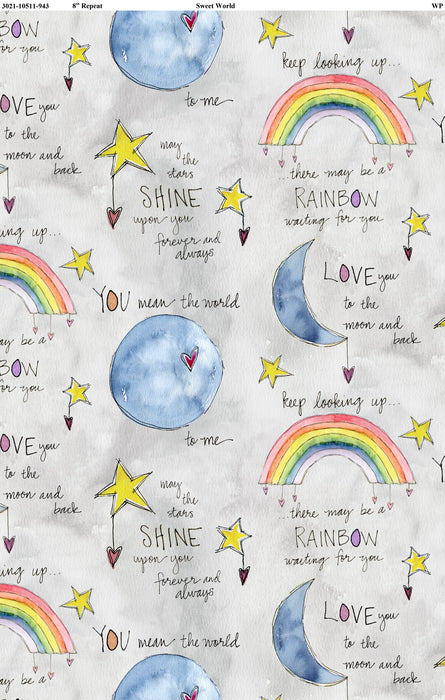 3021-10511-943 8" Repeat Sweet World WP
BOW
for you
LOVE you
to the
moon and
back
to me
keep looking up...
may
the
stars
SHINE
upon you
forever and
always
...there may be a
RAINBOW
waiting for you
LOVE you
to the
moon and
back
ing up...
may be a
BOW
for you
YOU mean the world
to me
keep looking up...
LOVE you
to the
moon and
back
may
the
stars
SHINE
upon you
forever and
always
...there may be a
RAINBOW
waiting for you
ing up...
may be a
YOU mean the world
LOVE you
to the
moon and
back